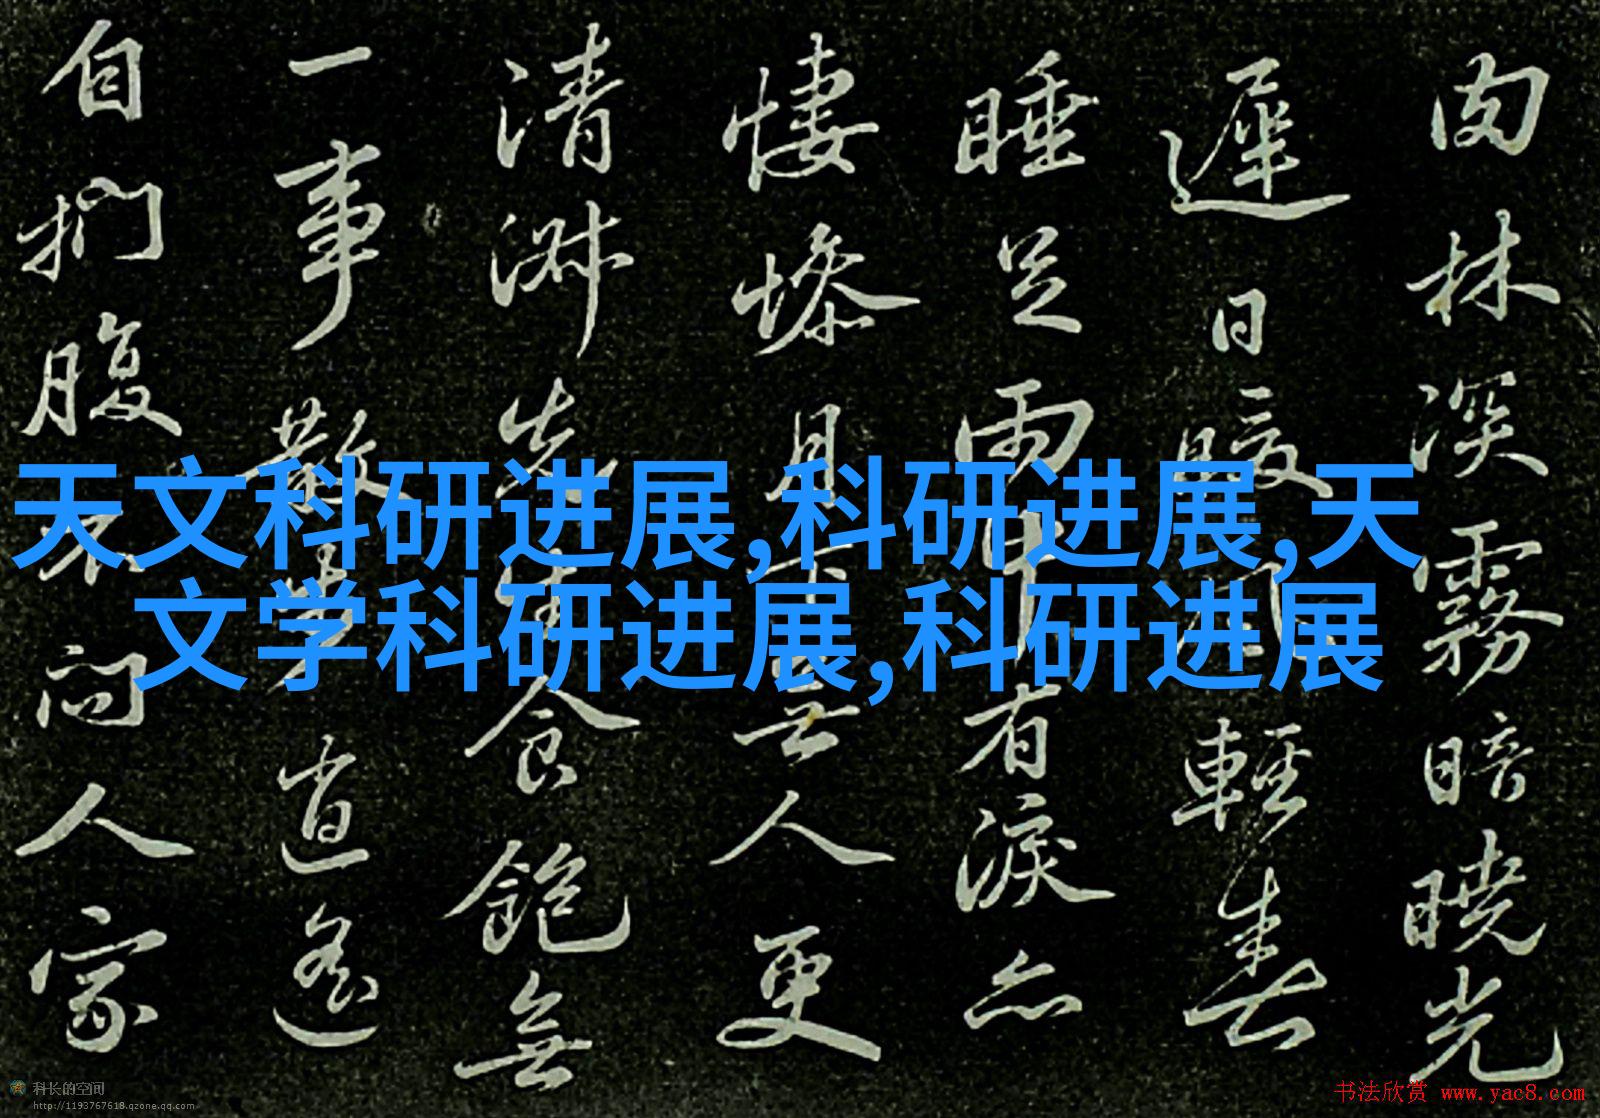 天文科研进展,科研进展,天
文学科研进展,科研进展
肉林深霧暗曉光
遲日暖 輕春
睡足雨中有淚
悽 具 無人更
清淋先生食飽無
一事散 逍遙
自捫腹不问人家
科长的空间
http://1193767618.qzone.qq.com
书法欣赏 www.yac8.com